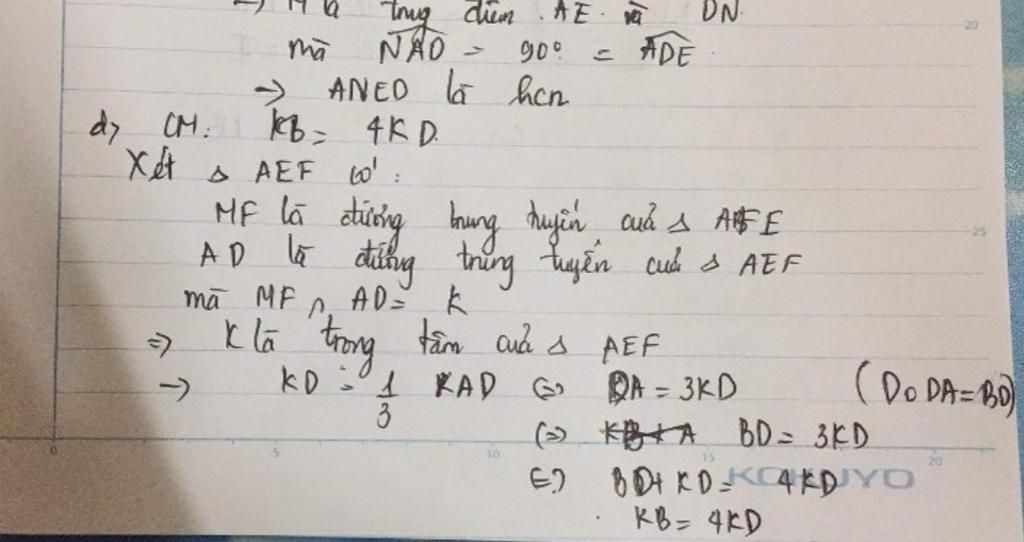 => M là trung điểm AE và DN.
mà NAD = 90° = ADE
-> ANED là hcn
d> CM: KB = 4KD.
Xét Δ AEF có:
MF là đường trung tuyến của Δ AFE
AD là đường trung tuyến của Δ AEF
mà MF ∩ AD = K
=> K là trọng tâm của Δ AEF
-> KD = 1/3 AD <=> DA = 3KD (Do DA = BD)
<=> BD = 3KD
<=> BD + KD = 4KD
KB = 4KD
KOKUYO
0 5 10 15 20
20
25